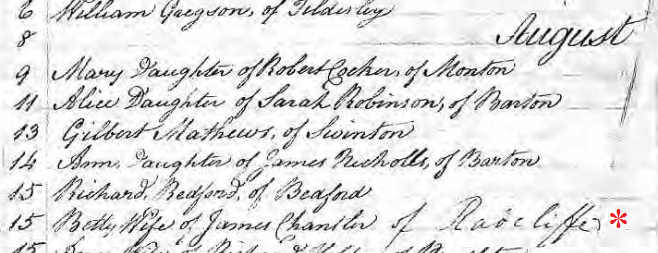 6 William Gregson, of Tildesley
8 August
9 Mary Daughter of Robert Cocker, of Monton
11 Alice Daughter of Sarah Robinson, of Barton
13 Gilbert Mathews, of Swinton
14 Ann, Daughter of James Nicholls, of Barton
15 Richard, Bedford, of Bedford
15 Betty Wife of James Chantler of Radcliffe *
15 Wife of